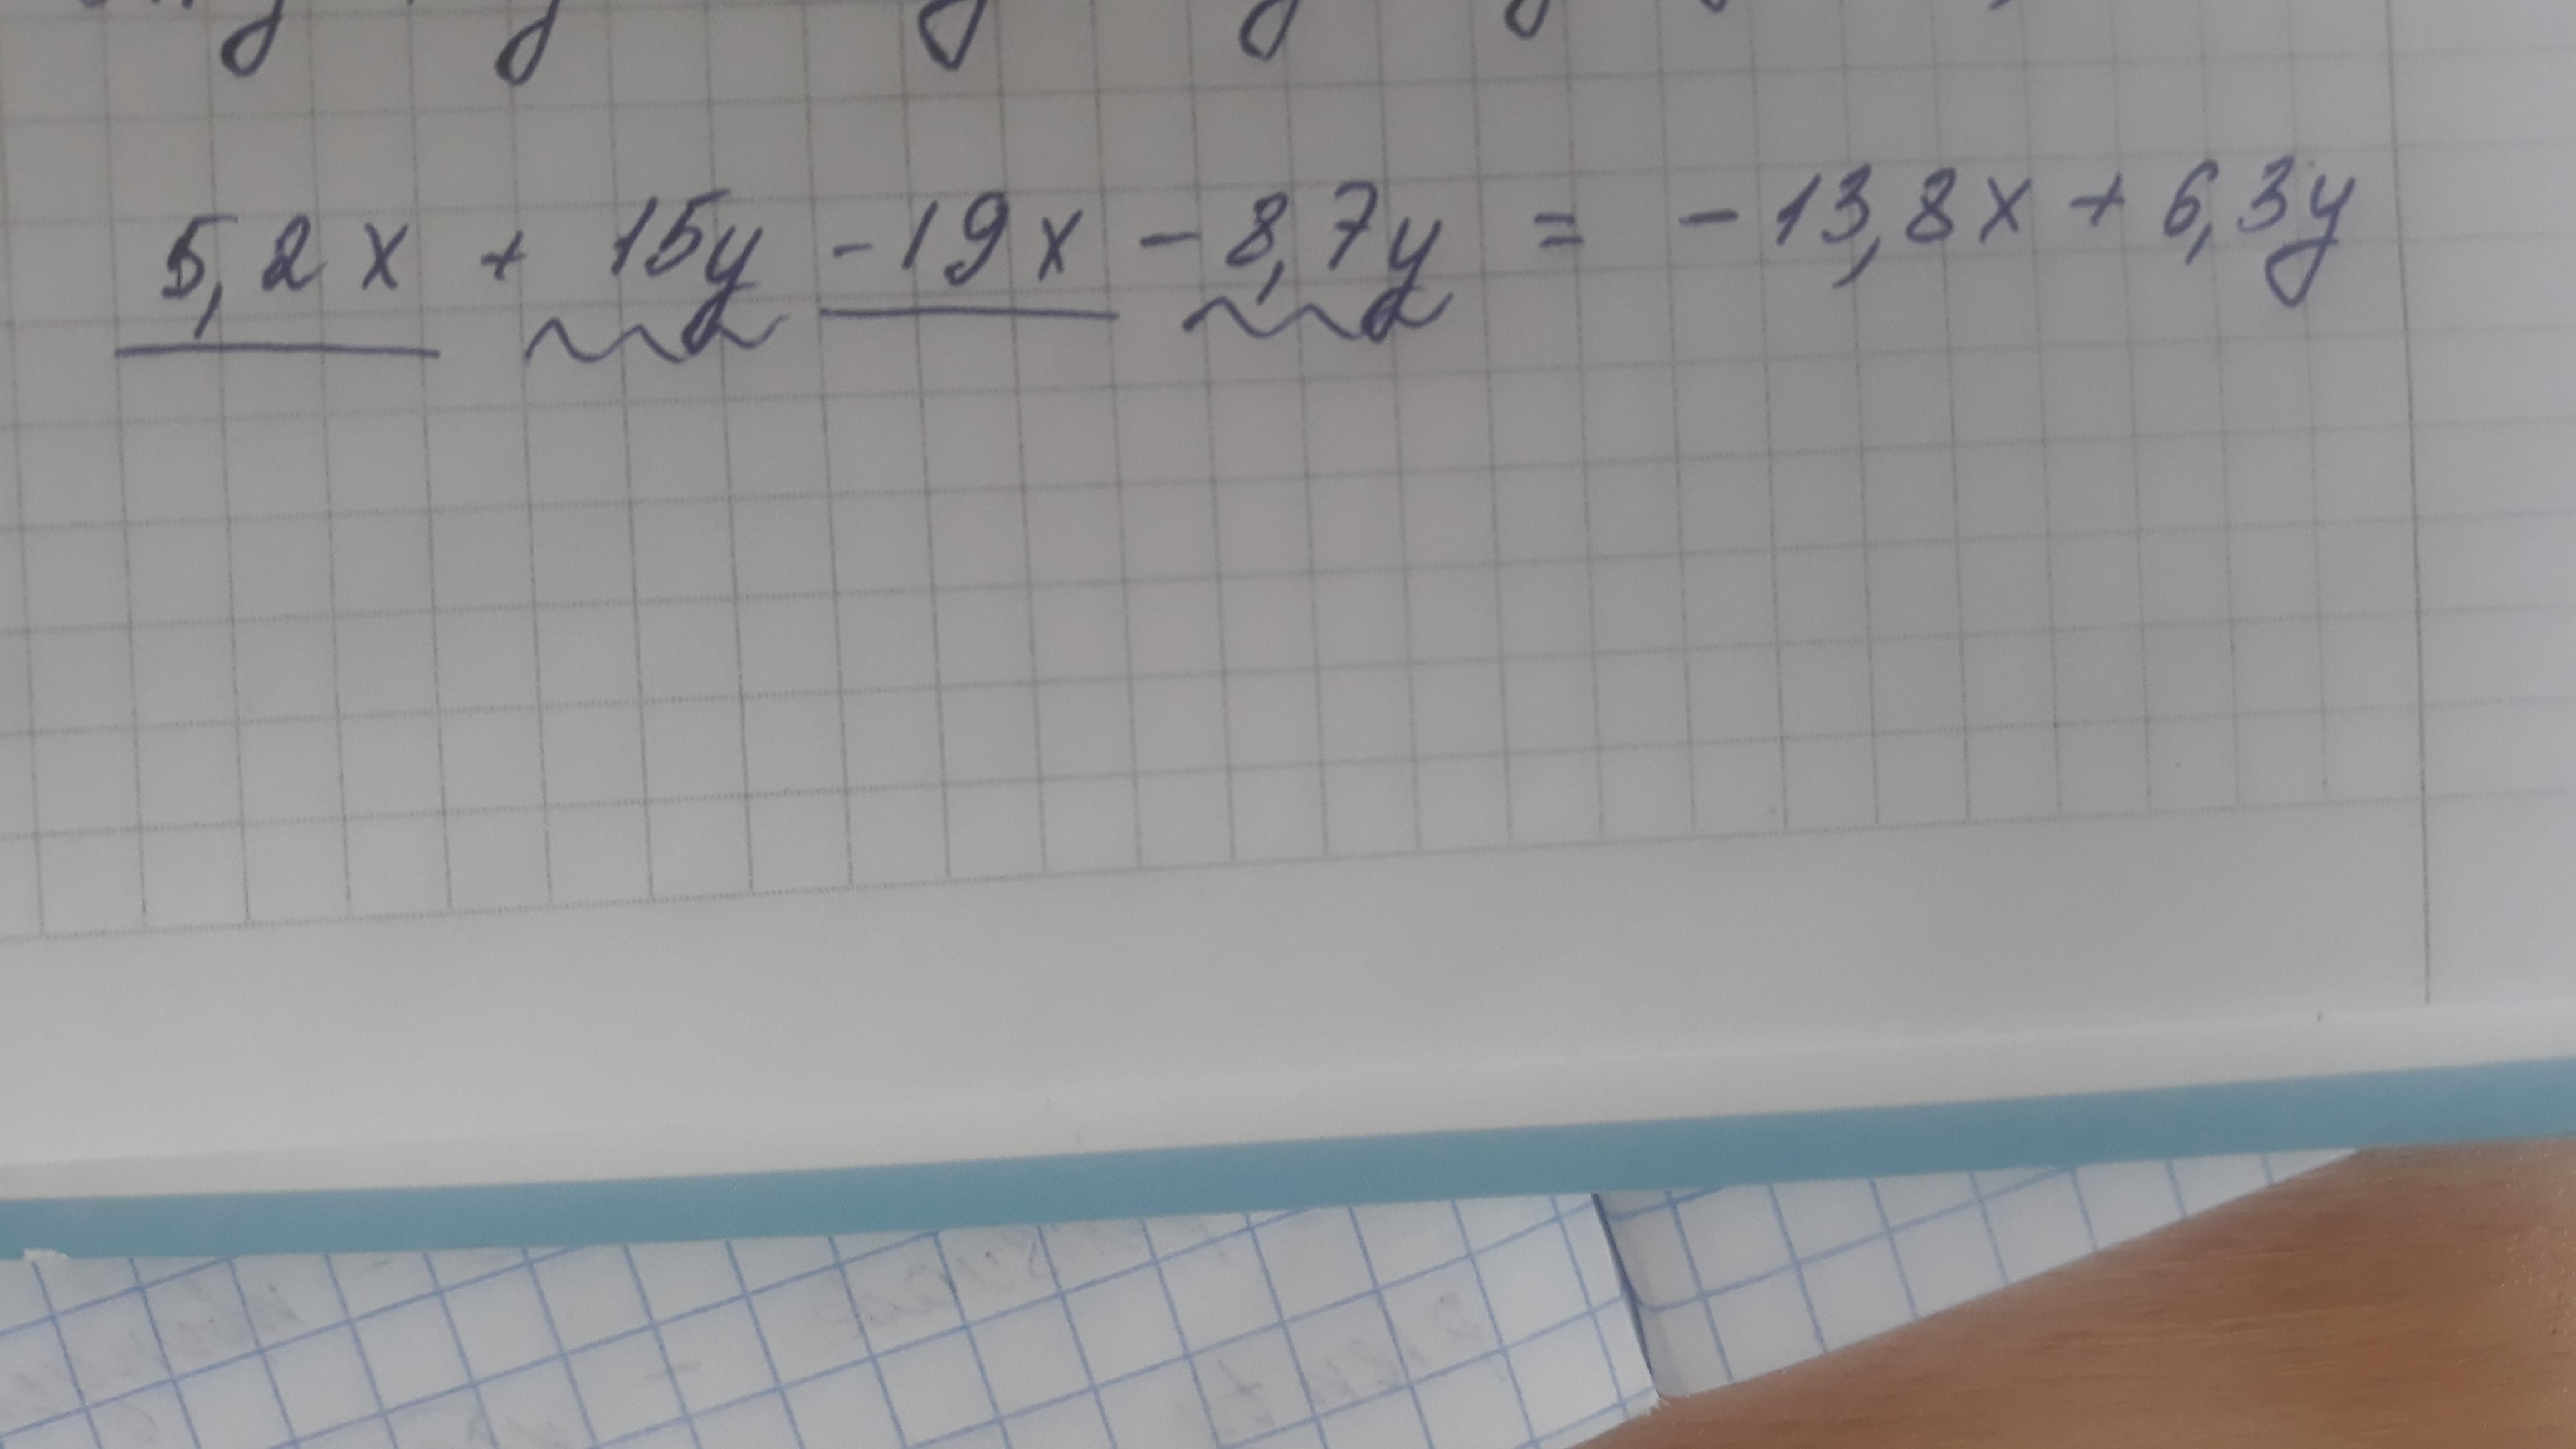 5,2x + 15y - 19x - 8,7y = - 13,8x + 6,3y